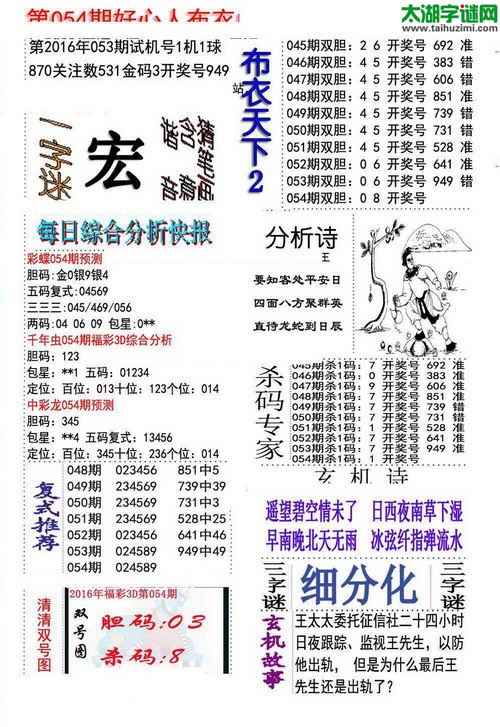 第054期好心人布衣
太湖字谜网
http://www.taihuzimi.com
第2016年053期试机号1机1球
870关注数531金码3开奖号949
站
布衣天下2
045期双胆: 2 6 开奖号 692 准
046期双胆: 4 5 开奖号 383 错
047期双胆: 4 5 开奖号 696 错
048期双胆: 4 5 开奖号 851 准
049期双胆: 4 5 开奖号 739 错
050期双胆: 4 5 开奖号 731 错
051期双胆: 4 5 开奖号 528 准
052期双胆: 0 6 开奖号 641 准
053期双胆: 0 6 开奖号 949 错
054期双胆: 0 8 开奖号
一字迷
宏
每日综合分析快报
彩蝶054期预测
胆码: 金0银9银4
五码复式: 04569
三三三: 045/469/056
两码: 04 06 09 包星: 0**
千年虫054期福彩3D综合分析
胆码: 123
包星: **1 五码: 01234
定位: 百位: 013十位: 123个位: 014
中彩龙054期预测
胆码: 345
包星: **4 五码复式: 13456
定位: 百位: 345十位: 236个位: 014
分析诗
王
要知客处平安日
四面八方聚群英
直待龙蛇到日辰
杀码专家
045期杀1码: 7 开奖号 692 准
046期杀1码: 0 开奖号 383 准
047期杀1码: 9 开奖号 696 错
048期杀1码: 8 开奖号 851 错
049期杀1码: 7 开奖号 739 错
050期杀1码: 7 开奖号 731 错
051期杀1码: 7 开奖号 528 准
052期杀1码: 7 开奖号 641 准
053期杀1码: 7 开奖号 949 准
054期杀1码: 1 开奖号
复式推荐
048期 023456 851中5
049期 234569 739中39
050期 234569 731中3
051期 234569 528中25
052期 023456 641中46
053期 024589 949中49
054期 024589
玄机诗
遥望碧空情未了 日西夜南草下湿
早南晚北天无雨 冰弦纤指弹流水
清清双号图
2016年福彩3D第054期
双号图
胆码:03
杀码:8
三字谜
细分化
三字谜
玄机故事
王太太委托征信社二十四小时
日夜跟踪、监视王先生, 以防
他出轨, 但是为什么最后王
先生还是出轨了?